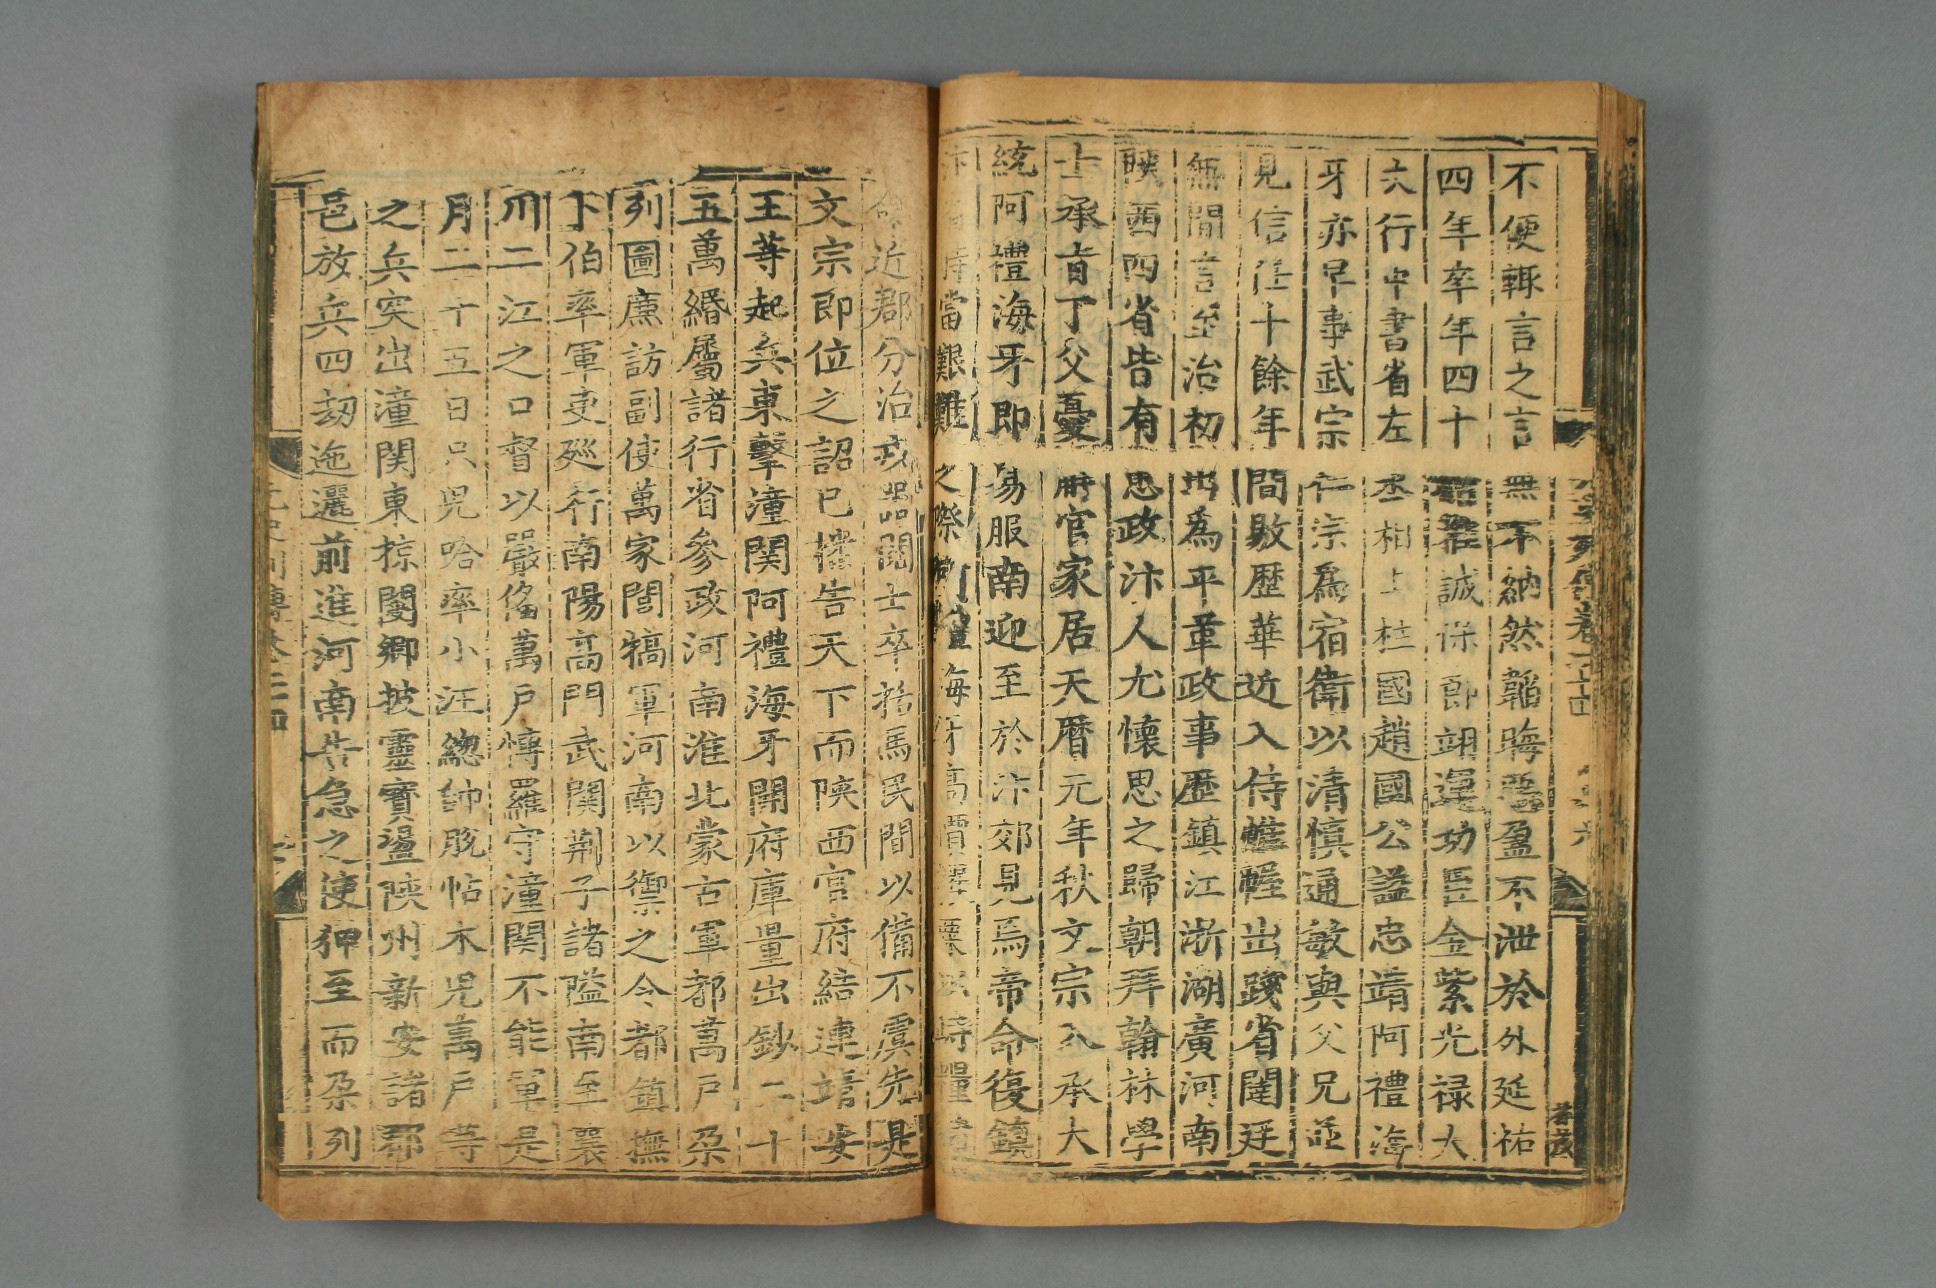 不便輒言之言無不納然韜晦惡盈不泄於外延祐
四年卒年四十誠保節翊運功臣金紫光禄大
夫行中書省左丞相上柱國趙國公諡忠靖阿禮海
牙亦早事武宗仁宗爲宿衛以清慎通敏與父兄並
見信任十餘年間敭歷華近入侍帷幄出踐省闥廷
無間言至治初出爲平章政事歷鎮江浙湖廣河南
陝西四省皆有惠政汴人尤懷思之歸朝拜翰林學
士承旨丁父憂解官家居天曆元年秋文宗入承大
統阿禮海牙即易服南迎至於汴郊見焉帝命復鎮
汴省時當艱難之際阿禮海牙高價糴粟以峙糧儲
命近郡分治戎器閱士卒括馬民間以備不虞先是
文宗即位之詔已播告天下而陝西官府結連靖安
王等起兵東擊潼關阿禮海牙開府庫量出鈔二十
五萬緡屬諸行省參政河南淮北蒙古軍都萬戶朶
列圖廉訪副使萬家閭犒軍河南以禦之令都鎮撫
卜伯率軍吏廵行南陽高門武關荆子諸隘南至襄
州二江之口督以嚴俻萬戶慱羅守潼關不能軍是
月二十五日只兒哈率小汪總帥脫帖木兒萬戶等
之兵突出潼關東掠閿鄉披靈寶盪陝州新安諸郡
邑放兵四刼迤邐前進河南告急之使狎至而朶列